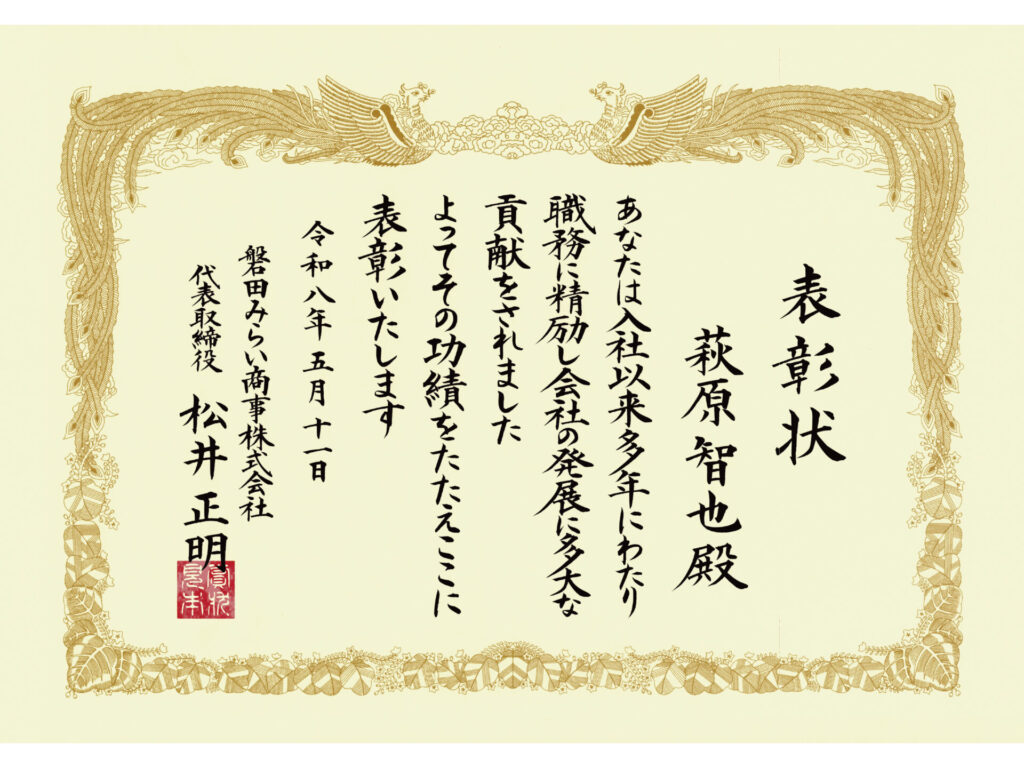 表彰状
萩原智也殿
あなたは入社以来多年にわたり
職務に精励し会社の発展に多大な
貢献をされました
よってその功績をたたえここに
表彰いたします
令和八年五月十一日
磐田みらい商事株式会社
代表取締役 松井正明
賞状見本